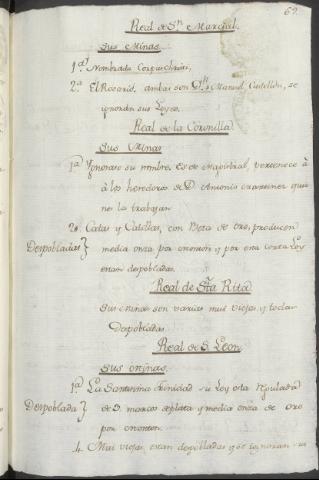 69.
Real de Sn. Marcial.
Sus Minas.
1.a Nombrada Corpus Christi,
2.a El Rosario, ambas son Ds. Manuel Castillon, se
ignoran sus Leyes.
Real de la Coronilla
Sus Minas
1.a Ygnorase su nombre, Es de Magistral, pertenece à
à los herederos de D. Antonio quie
nes la trabajan
2.a Catas y Catillas, con Beta de oro, producen
Despobladas} media onza por monton y por esta corta Ley
estan despobladas.
Real de Sta. Rita
Sus minas son varias mui viejas, y todas
Despobladas.
Real de S. Leon
Sus minas.
1.a La Santisima Trinidad su Ley esta Regulada
Despoblada} de 3. marcos de plata y media onza de oro
por monton.
4. Mui viejas, estan despobladas y se ignoran su